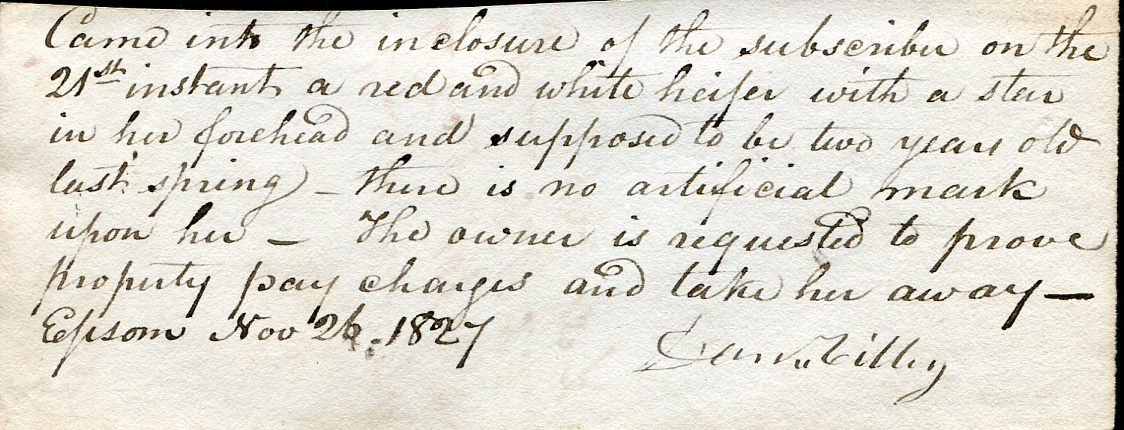 Came into the inclosure of the subscriber on the
21st instant a red and white heifer with a star
in her forehead and supposed to be two years old
last spring – there is no artificial mark
upon her – The owner is requested to prove
property pay charges and take her away –
Epsom Nov 26. 1827
Danl. Cilley